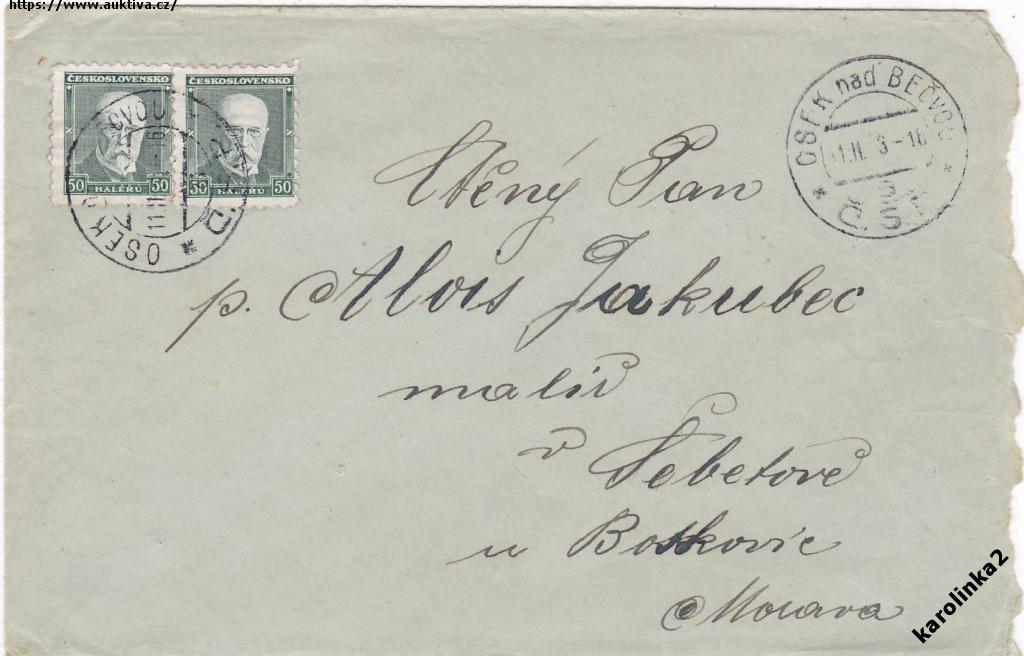 https://www.auktiva.cz/
ČESKOSLOVENSKO ČESKOSLOVENSKO
50 HALÉŘŮ 50 50 HALÉŘŮ 50
OSEK nad BEČVOU
Č.S.
Ctěný Pan
p. Alois Jakubec
malíř
v Šebetově
u Boskovic
Morava
karolinka2